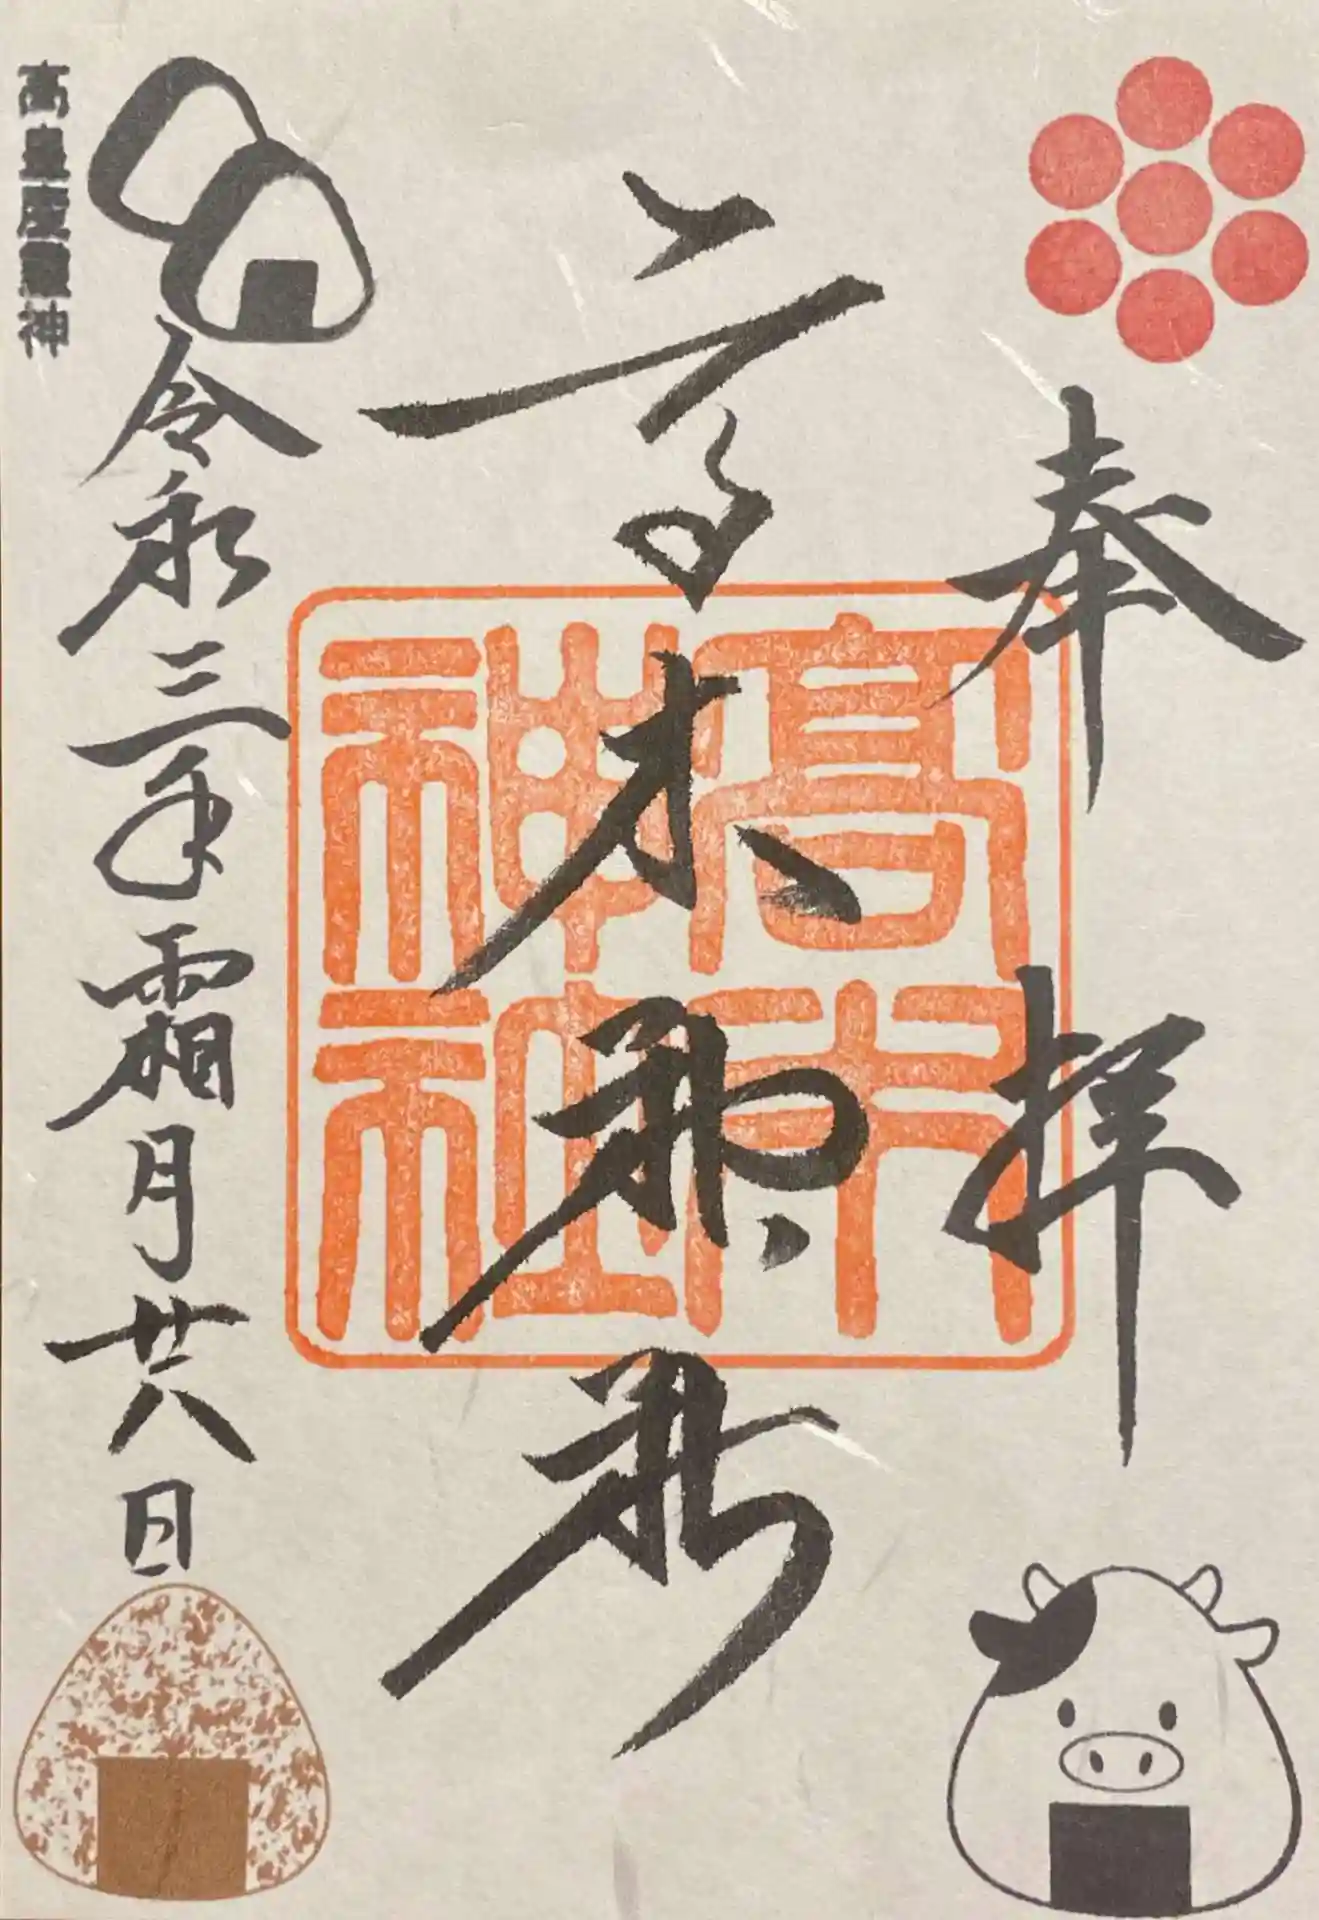 奉拝
高木神社
高木神社
令和三年霜月廿八日
高皇産靈神